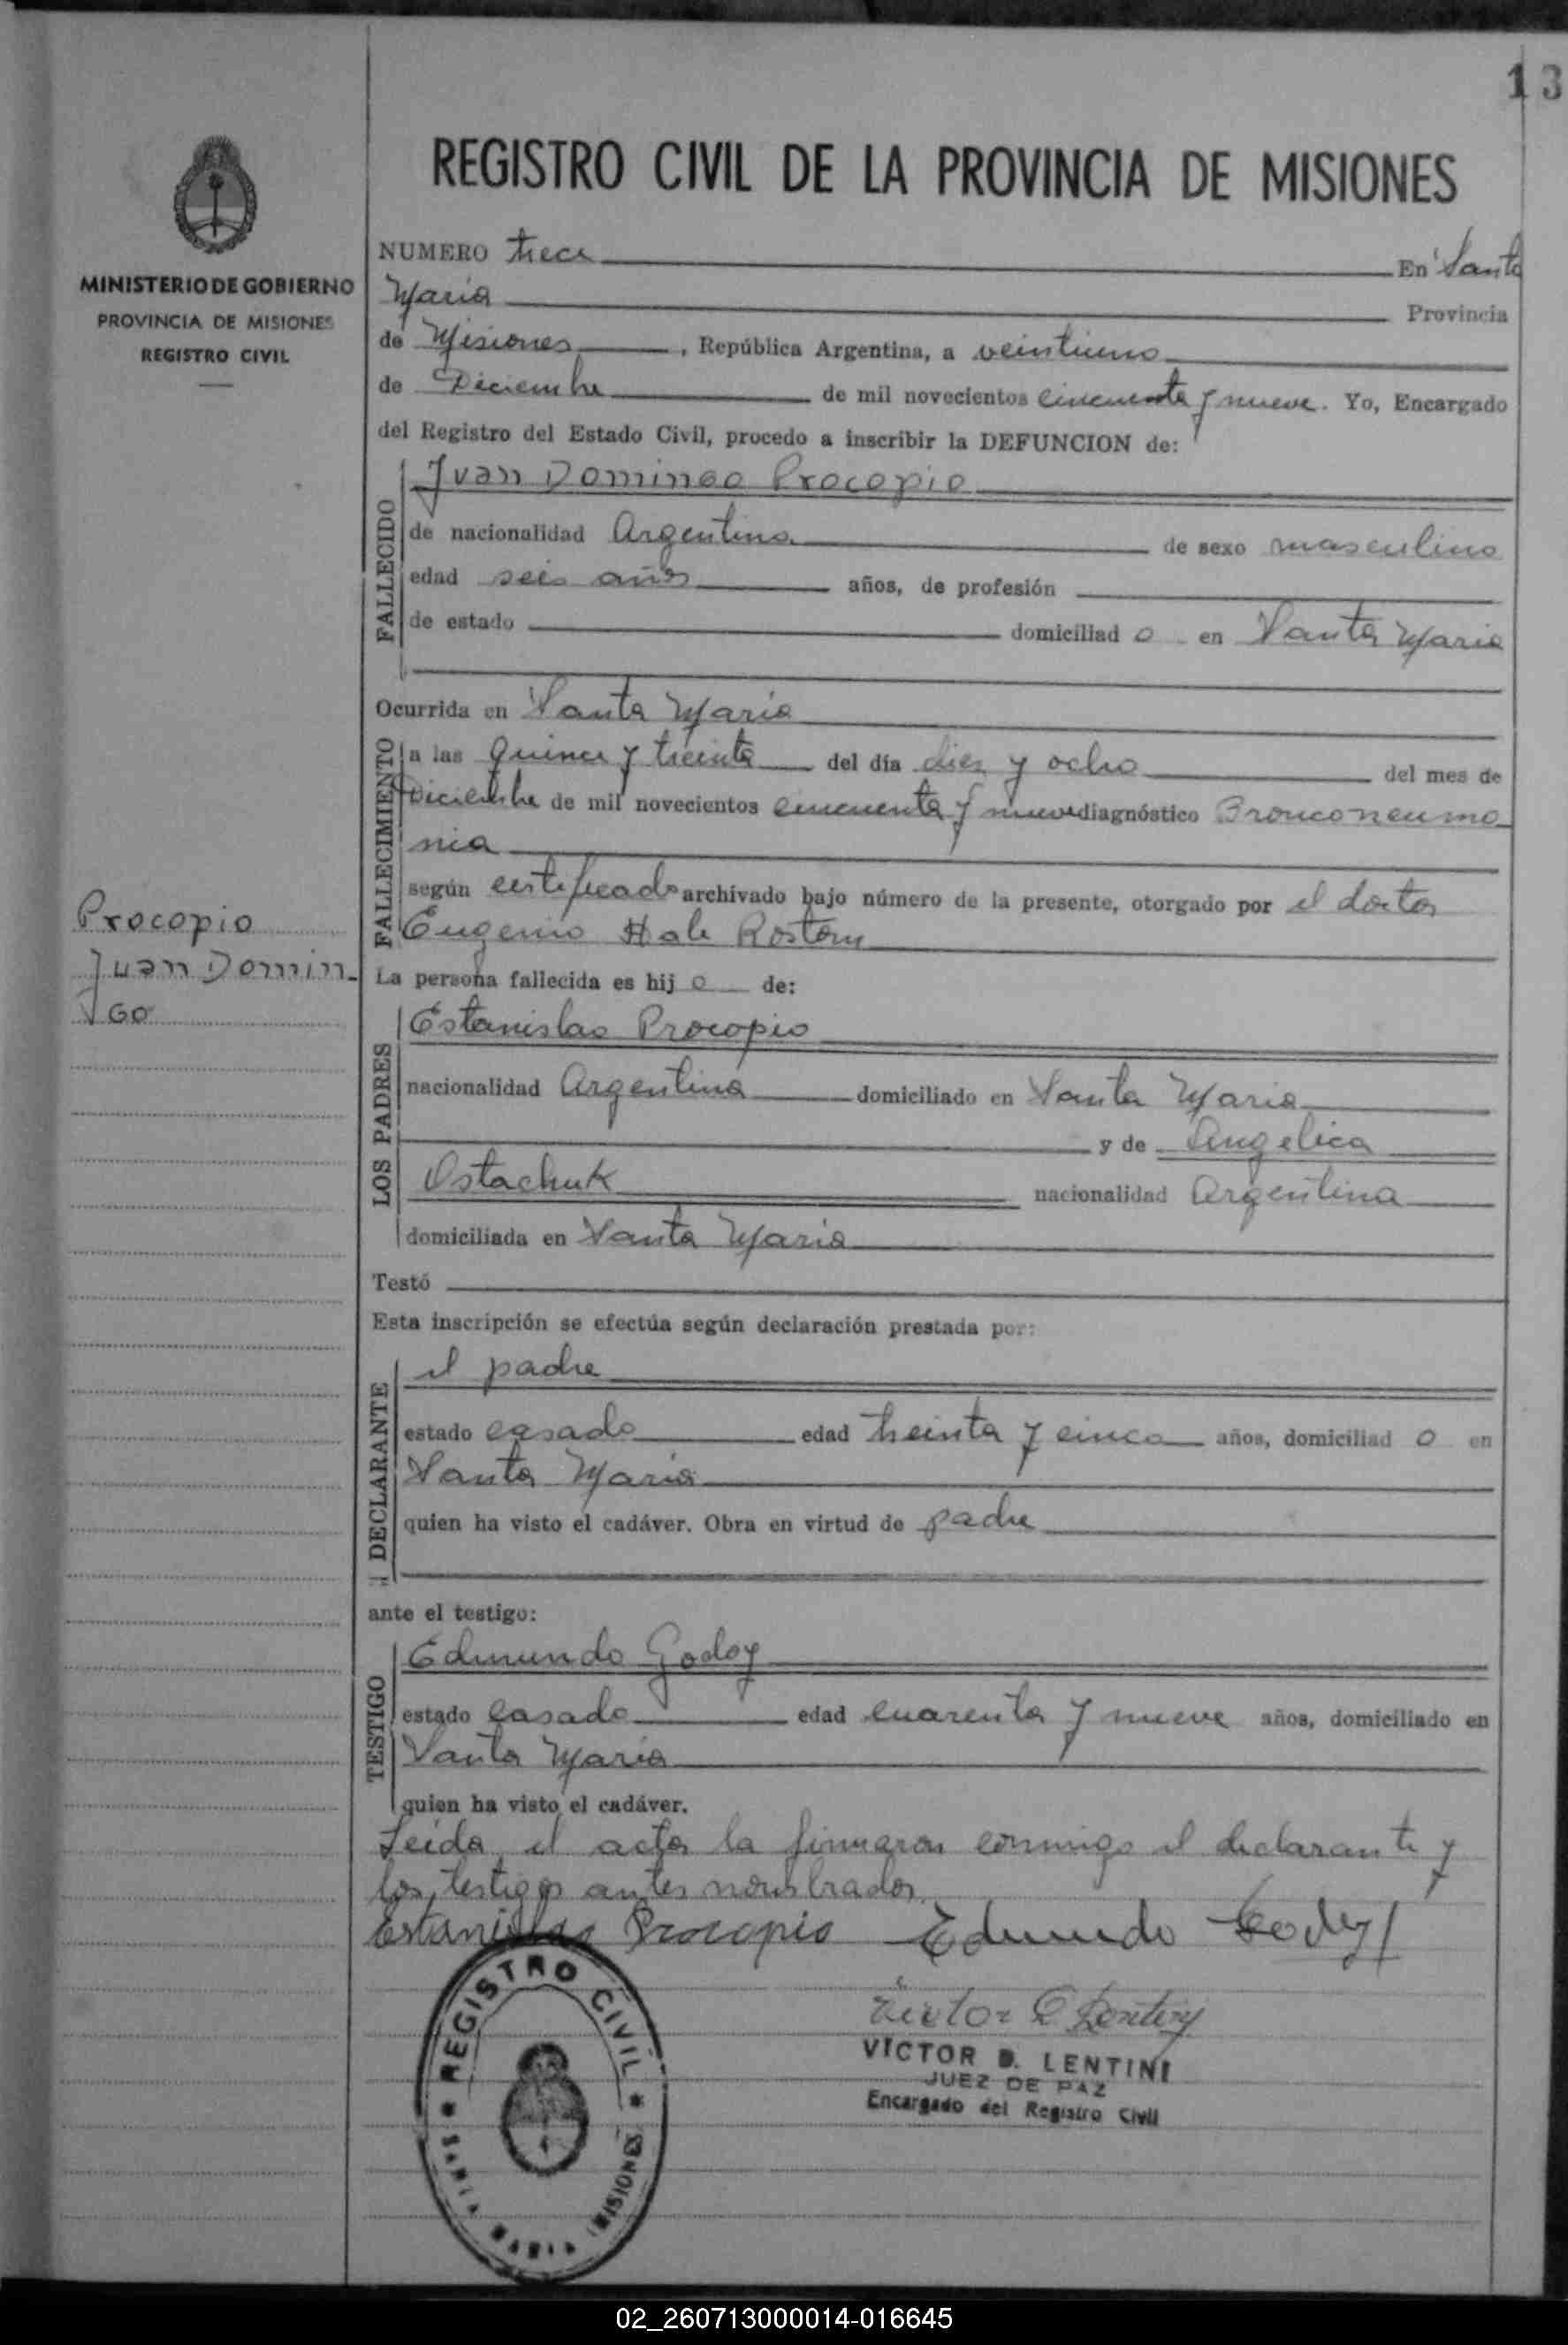 13
REGISTRO CIVIL DE LA PROVINCIA DE MISIONES
MINISTERIO DE GOBIERNO
PROVINCIA DE MISIONES
REGISTRO CIVIL
NUMERO trece En Santa
Maria Provincia
de Misiones, República Argentina, a veintiuno
de Diciembre de mil novecientos cincuenta y nueve. Yo, Encargado
del Registro del Estado Civil, procedo a inscribir la DEFUNCION de:
FALLECIDO
Juan Domingo Procopio
de nacionalidad Argentina de sexo masculino
edad seis años años, de profesión
de estado domiciliad o en Santa Maria
Ocurrida en Santa Maria
FALLECIMIENTO
a las quince y treinta del día diez y ocho del mes de
Diciembre de mil novecientos cincuenta y nueve diagnóstico Bronconeumo
nia
según certificado archivado bajo número de la presente, otorgado por el doctor
Eugenio Rostom
Procopio
Juan Domin-
go
La persona fallecida es hij o de:
LOS PADRES
Estanislao Procopio
nacionalidad Argentina domiciliado en Santa Maria
y de Angelica
Ostachuk nacionalidad Argentina
domiciliada en Santa Maria
Testó
Esta inscripción se efectúa según declaración prestada por:
DECLARANTE
el padre
estado casado edad treinta y cinco años, domiciliad o en
Santa Maria
quien ha visto el cadáver. Obra en virtud de padre
ante el testigo:
TESTIGO
Edmundo Godoy
estado casado edad cuarenta y nueve años, domiciliado en
Santa Maria
quien ha visto el cadáver.
Leida el acta la firmaron conmigo el declarante y
los testigos antes nombrados.
Estanislao Procopio Edmundo Godoy
VICTOR D. LENTINI
JUEZ DE PAZ
Encargado del Registro Civil
REGISTRO CIVIL
SANTA MARIA (MISIONES)
02_260713000014-016645